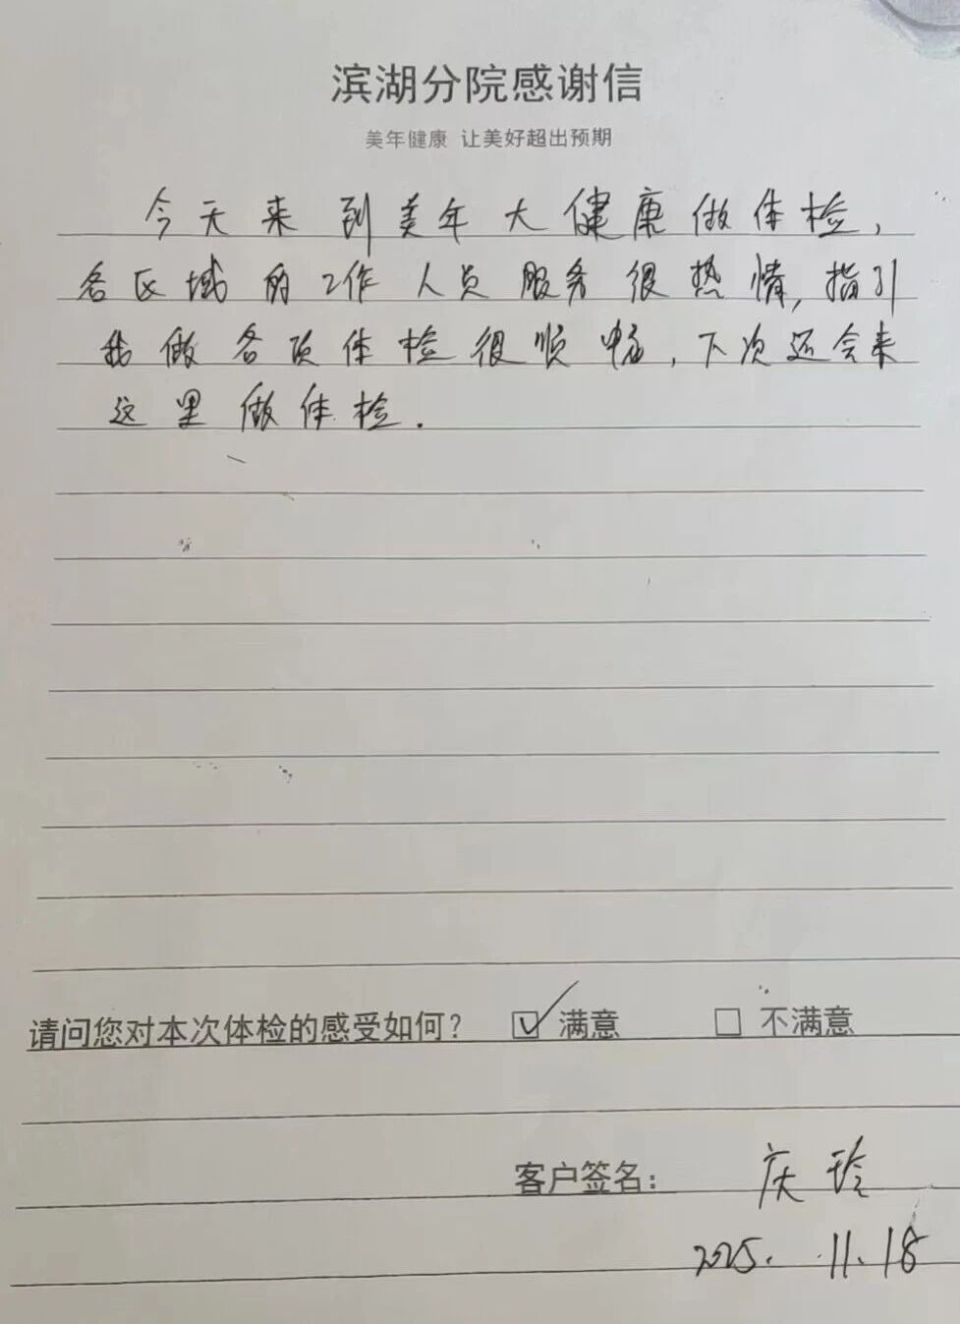 滨湖分院感谢信
美年健康 让美好超出预期
今天来到美年大健康做体检，
各区域的工作人员服务很热情，指引
我做各项体检很顺畅，下次还会来
这里做体检.
请问您对本次体检的感受如何？ ☑ 满意 □ 不满意
客户签名： 庆玲
2025. 11. 18